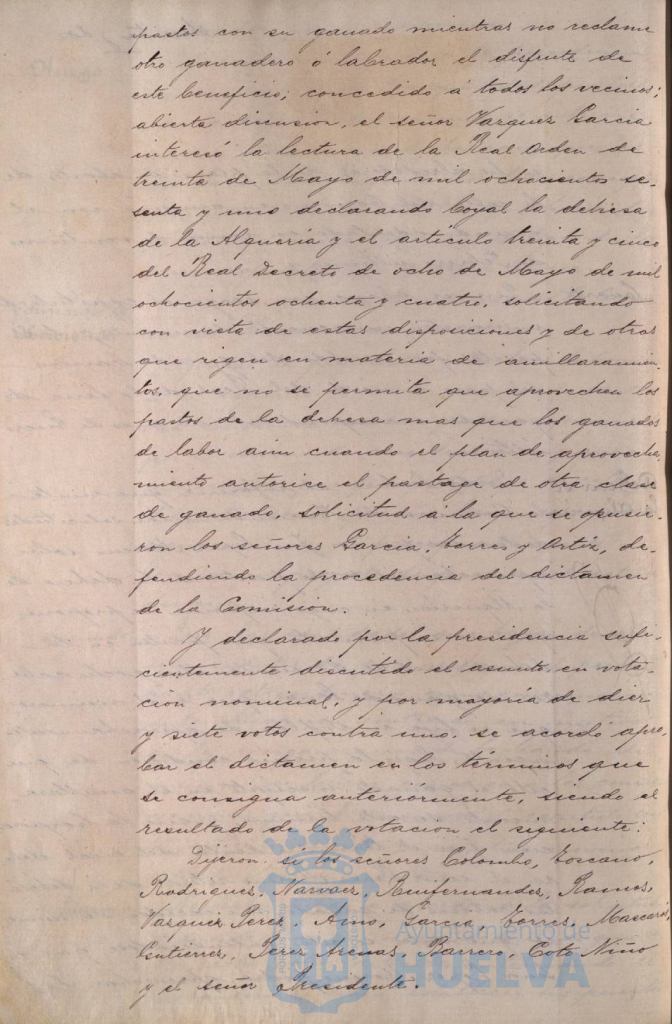 pastos con su ganado mientras no reclame
otro ganadero ó labrador el disfrute de
este beneficio, concedido á todos los vecinos;
abierta discusion, el señor Vazquez Garcia
interesó la lectura de la Real orden de
treinta de Mayo de mil ochocientos se-
senta y uno declarando boyal la dehesa
de la Alqueria y el articulo treinta y cinco
del Real Decreto de ocho de Mayo de mil
ochocientos ochenta y cuatro, solicitando
con vista de estas disposiciones y de otras
que rigen en materia de amillaramien-
tos, que no se permita que aprovechen los
pastos de la dehesa mas que los ganados
de labor aun cuando el plan de aprovecha-
miento autorice el pastage de otra clase
de ganado, solicitud á la que se opusie-
ron los señores Garcia, Torres y Ortiz, de-
fendiendo la procedencia del dictamen
de la Comision.
Y declarado por la presidencia sufi-
cientemente discutido el asunto, en vota-
ción nominal, y por mayoría de diez
y siete votos contra uno, se acordó apro-
bar el dictamen en los términos que
se consigna anteriórmente, siendo el
resultado de la votacion el siguiente:
Dijeron si los señores Colombo, Toscano,
Rodriguez, Narvaez, Ruifernandez, Ramos,
Vazquez Perez, Amo, Garcia, Torres, Mascarós,
Gutierrez, Perez Arenas, Barrero, Coto, Niño
y el señor Presidente.
Ayuntamiento de
HUELVA